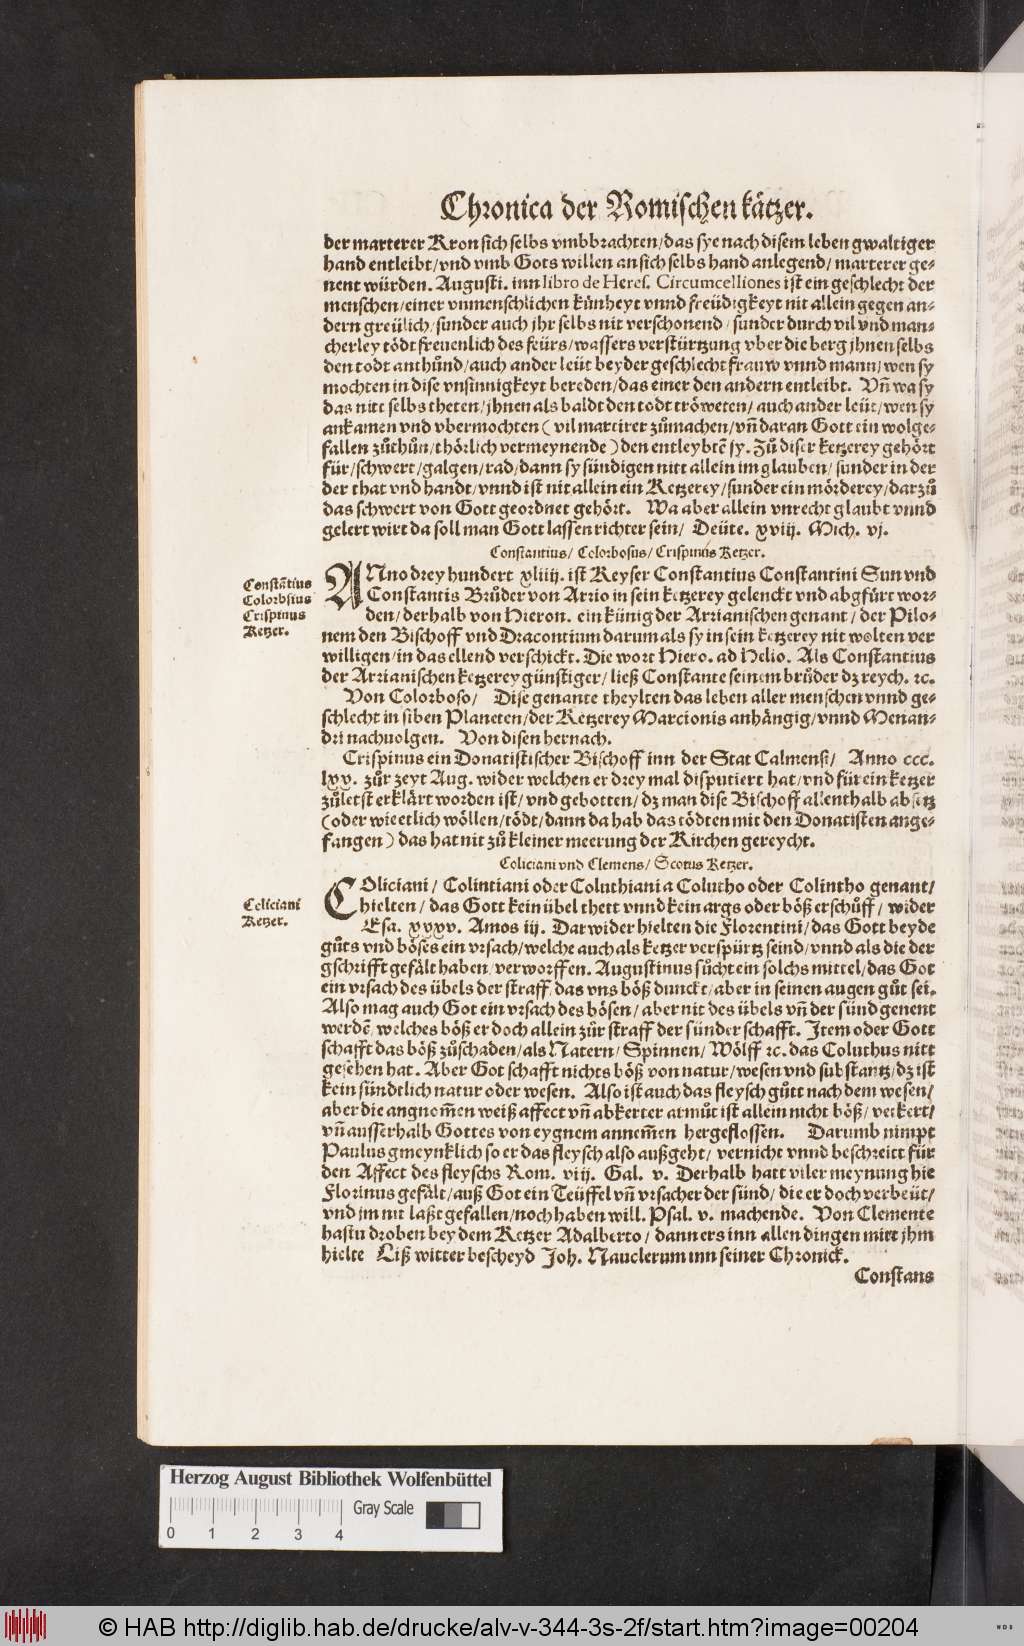 Chronica der Romischen kätzer.
der marterer Kron sich selbs vmbbrachten/das sye nach disem leben gwaltiger
hand entleibt/vnd vmb Gots willen an sich selbs hand anlegend/marterer ge⸗
nent würden. Augusti. inn libro de Heres. Circumcelliones ist ein geschlecht der
menschen/einer vnmenschlichen künheyt vnnd freüdigkeyt nit allein gegen an⸗
dern greülich/sunder auch jhr selbs nit verschonend/sunder durch vil vnd man⸗
cherley tödt freuenlich des feürs/wassers verstürtzung vber die berg jhnen selbs
den todt anthůnd/auch ander leüt beyder geschlecht frauw vnnd mann/wen sy
mochten in dise vnsinnigkeyt bereden/das einer den andern entleibt. Vñ wa sy
das nitt selbs theten/jhnen als baldt den todt tröweten/auch ander leüt/wen sy
ankamen vnd vbermochten (vil martirer zůmachen/vñ daran Gott ein wolge⸗
fallen zůthůn/thörlich vermeynende) den entleybtē sy. Zů diser ketzerey gehört
für/schwert/galgen/rad/dann sy sündigen nitt allein im glauben/sunder in der
der that vnd handt/vnnd ist nit allein ein Ketzerey/sunder ein mörderey/darzů
das schwert von Gott geordnet gehört. Wa aber allein vnrecht glaubt vnnd
gelert wirt da soll man Gott lassen richter sein/ Deüte. xviij. Mich. vj.
Constantius/ Colorbosus/ Crispinus Ketzer.
Constātius
Colorbsius
Crispinus
Ketzer.
ANno drey hundert xliiij. ist Keyser Constantius Constantini Sun vnd
Constantis Brůder von Arrio in sein ketzerey gelenckt vnd abgfürt wor⸗
den/derhalb von Hieron. ein künig der Arrianischen genant/der Pilo⸗
nem den Bischoff vnd Dracontium darum als sy in sein ketzerey nit wolten ver
willigen/in das ellend verschickt. Die wort Hiero. ad Helio. Als Constantius
der Arrianischen ketzerey günstiger/ließ Constante seinem brůder dz reych. ꝛc.
Von Colorboso/ Dise genante theylten das leben aller menschen vnnd ge⸗
schlecht in siben Planeten/der Ketzerey Marcionis anhängig/vnnd Menan⸗
dri nachuolgen. Von disen hernach.
Crispinus ein Donatistischer Bischoff inn der Stat Calmensi/ Anno ccc.
lxv. zůr zeyt Aug. wider welchen er drey mal disputiert hat/vnd für ein ketzer
zůletst erklärt worden ist/vnd gebotten/dz man dise Bischoff allenthalb absetz
(oder wieetlich wöllen/tödt/dann da hab das tödten mit den Donatisten ange⸗
fangen) das hat nit zů kleiner meerung der Kirchen gereycht.
Coliciani vnd Clemens/ Scotus Ketzer.
Coliciani
Ketzer.
COliciani/ Colintiani oder Coluthiani a Colutho oder Colintho genant/
hielten/das Gott kein übel thett vnnd kein args oder böß erschůff/wider
Esa. xxxv. Amos iij. Darwider hielten die Florentini/das Gott beyde
gůts vnd böses ein vrsach/welche auch als ketzer verspürtz seind/vnnd als die der
gschrifft gefält haben/verworffen. Augustinus sůcht ein solchs mittel/das Got
ein vrsach des übels der straff das vns böß dunckt/aber in seinen augen gůt sei.
Also mag auch Got ein vrsach des bösen/aber nit des übels vñ der sünd genent
werdē/welches böß er doch allein zůr straff der sünder schafft. Item oder Gott
schafft das böß zůschaden/als Natern/Spinnen/Wölff ꝛc. das Coluthus nitt
gesehen hat. Aber Got schafft nichts böß von natur/wesen vnd substantz/dz ist
kein sündtlich natur oder wesen. Also ist auch das fleysch gůtt nach dem wesen/
aber die angnom̄en weiß affect vñ abkerter atmůt ist allein nicht böß/verkert/
vñ ausserhalb Gottes von eygnem annem̄en hergeflossen. Darumb nimpt
Paulus gmeynklich so er das fleysch also außgeht/vernicht vnnd beschreitt für
den Affect des fleyschs Rom. viij. Gal. v. Derhalb hatt viler meynung hie
Florinus gefält/auß Got ein Teüffel vñ vrsacher der sünd/die er doch verbeüt/
vnd jm nit laßt gefallen/noch haben will. Psal. v. machende. Von Clemente
hastu droben bey dem Ketzer Adalberto/dann ers inn allen dingen mitt jhm
hielte Liß witter bescheyd Joh. Nauclerum inn seiner Chronick.
Constans
Herzog August Bibliothek Wolfenbüttel
Gray Scale
0 1 2 3 4
© HAB http://diglib.hab.de/drucke/alv-v-344-3s-2f/start.htm?image=00204